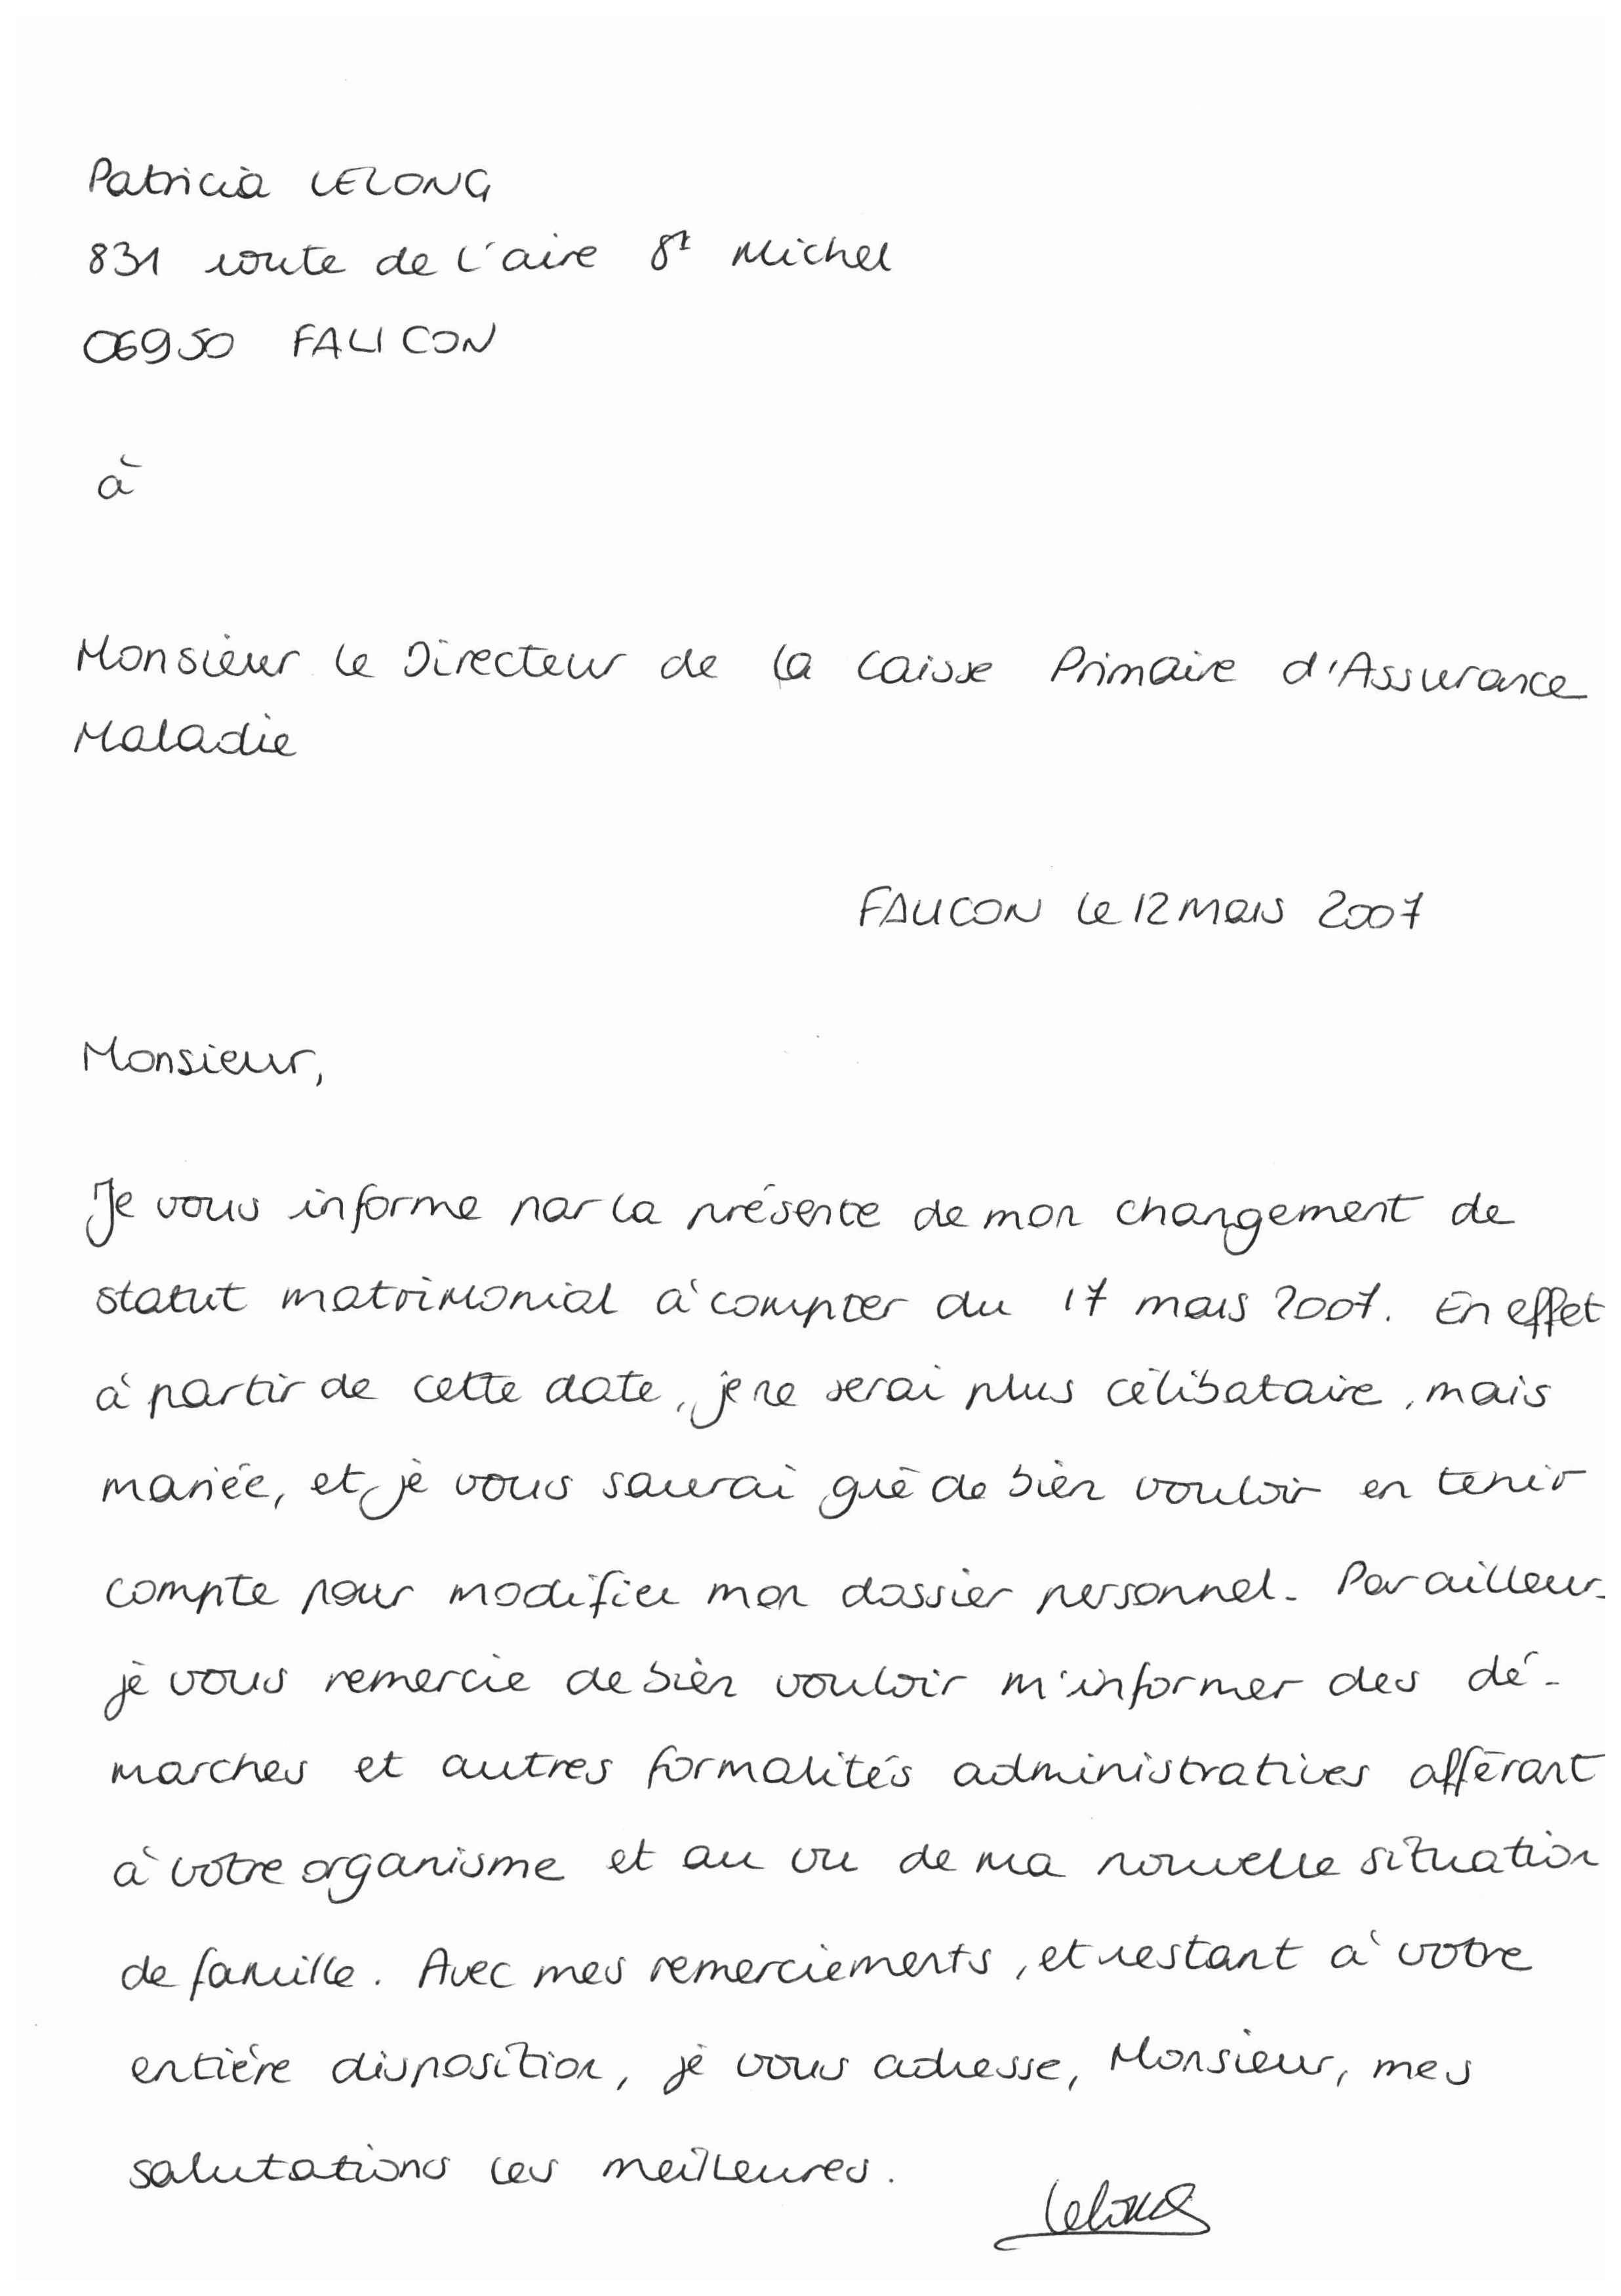 Patricia LELONG
831 route de l'aire St Michel
06950 FALICON
à
Monsieur le Directeur de la Caisse Primaire d'Assurance
Maladie
FALICON le 12 mars 2007
Monsieur,
Je vous informe par la présente de mon changement de
statut matrimonial à compter du 17 mars 2007. En effet
à partir de cette date, je ne serai plus célibataire, mais
mariée, et je vous saurai gré de bien vouloir en tenir
compte pour modifier mon dossier personnel. Par ailleurs
je vous remercie de bien vouloir m'informer des dé-
marches et autres formalités administratives afférant
à votre organisme et au vu de ma nouvelle situation
de famille. Avec mes remerciements, et restant à votre
entière disposition, je vous adresse, Monsieur, mes
salutations les meilleures.
Lelong